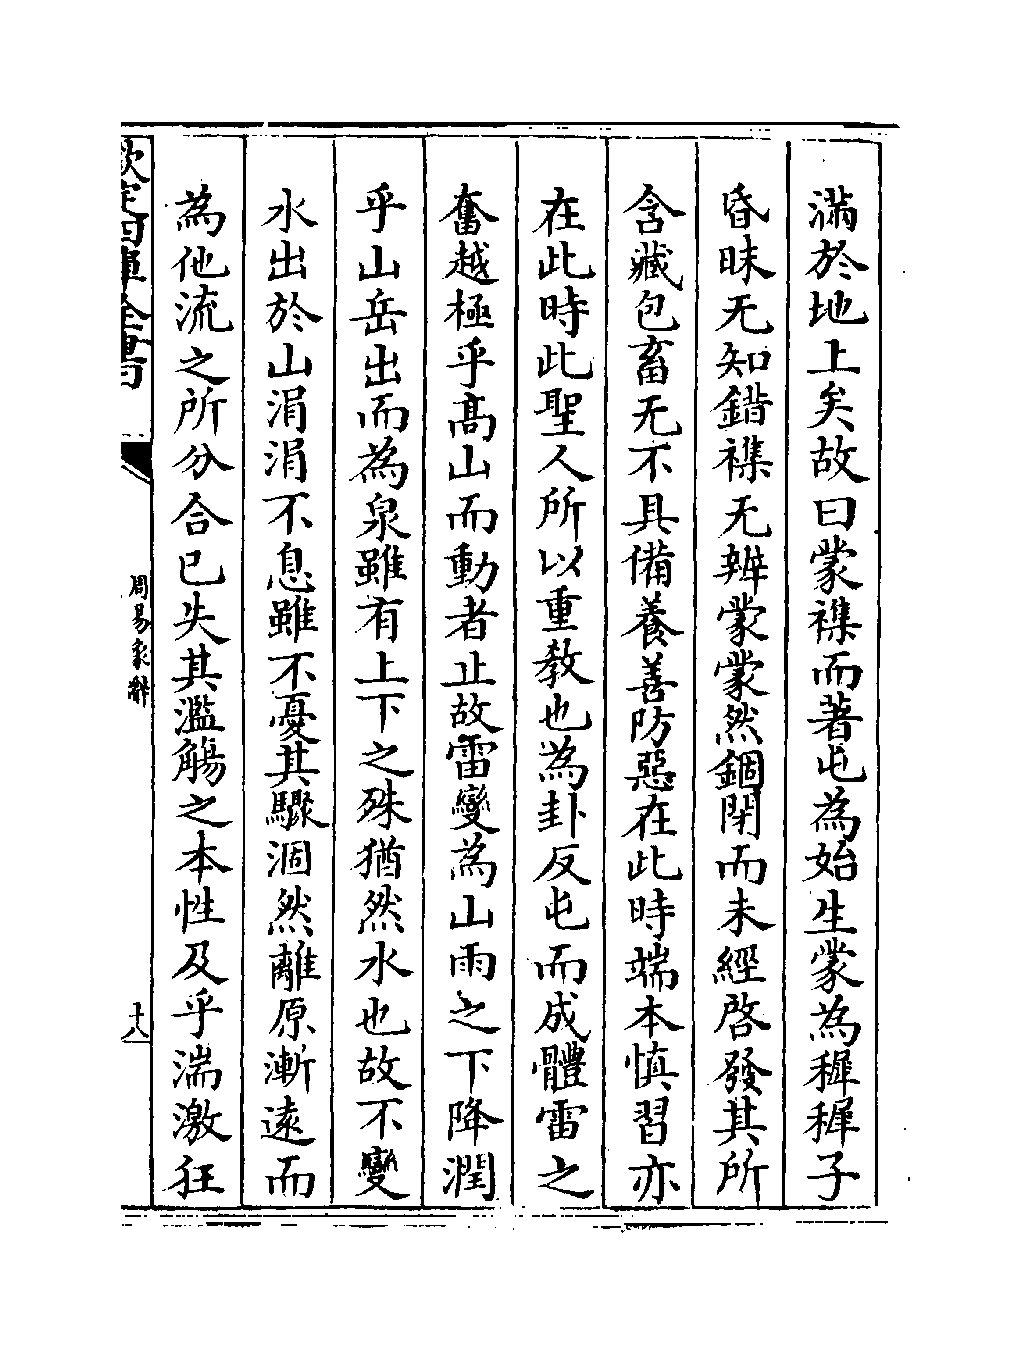 滿於地上矣故曰蒙襍而著屯為始生蒙為穉穉子
昏昧无知錯襍无辨蒙蒙然錮閉而未經啓發其所
含藏包畜无不具備養善防惡在此時端本慎習亦
在此時此聖人所以重教也為卦反屯而成體雷之
奮越極乎髙山而動者止故雷變為山雨之下降潤
乎山岳出而為泉雖有上下之殊猶然水也故不變
水出於山涓涓不息雖不憂其驟涸然離原漸逺而
為他流之所分合已失其濫觴之本性及乎湍激狂
欽定四庫全書
周易彖辭
十八